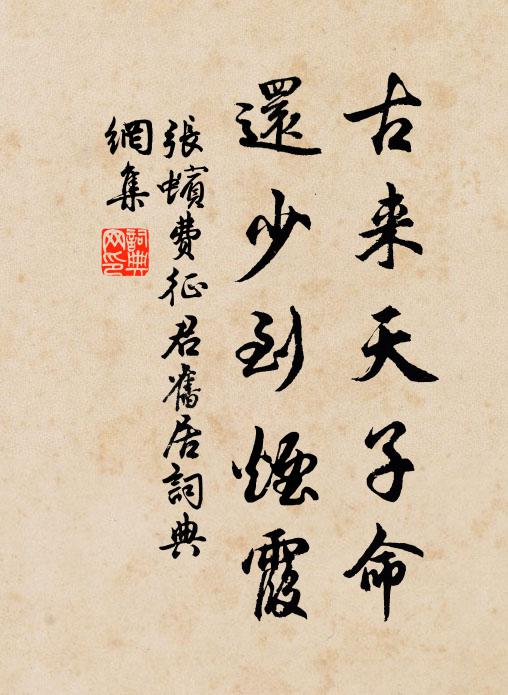 古来天子命
還少到煙霞
張蠙費征君舊居詞典
網集
詞典
网印